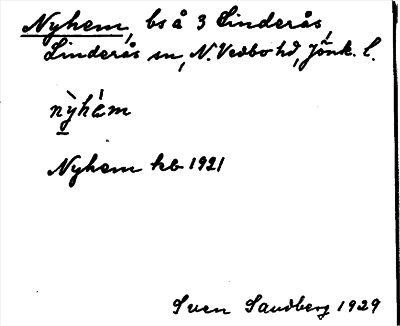 Nyhem, bs å 3 Linderås
Linderås sn, N. Vedbo hd, Jönk. l.
nỳhèm
Nyhem kb 1921
Sven Sandberg 1929